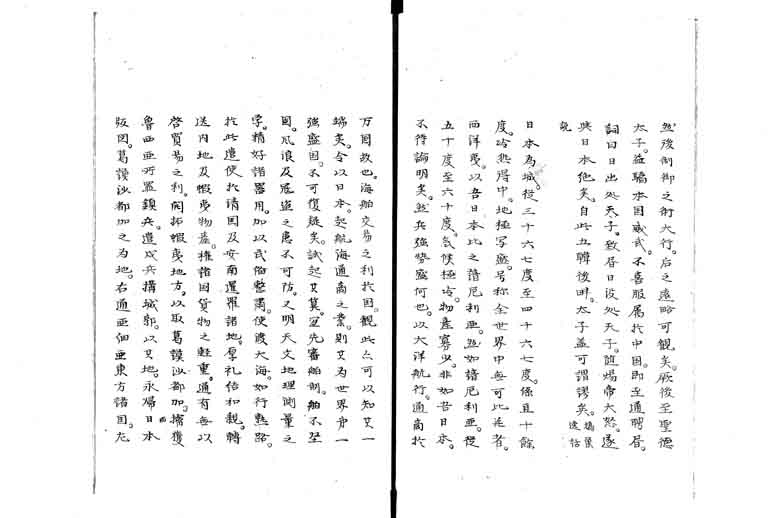 然後制御之術大行。后之遠略可観矣。厥後至聖徳
太子。益驕本国威武。不喜服属於中国。即至通聘唇。
詞曰日出処天子。致唇日没処天子。隋煬帝大怒。遂
與日本絶矣。自此五韓後畔。太子盖可謂謬矣。
説
日本為城。従三十六七度至四十六七度。係直十餘
度。冷熱得中。地極富盛。号称全世界中無可比並者。
西洋夷。以吾日本比之諳厄利亜。然如諳厄利亜。従
五十度至六十度。気候極冷。物産寡少。非如吾日本。
不待論明矣。然兵強勢盛何也。以大洋航行。通商於
万国故也。海舶交易之利於国。観此亦可以知其一
端矣。今以日本。起航海通商之業。則其為世界第一
強盛国。不可復疑矣。試起其業。宜先審舶制。舶不堅
固。風浪及展盗之患不可防。又明天文地理測量之
学。精好諸器用。加以武備整粛。便渡大海。如行熟路。
於此遣使於清国及安南暹羅諸地。厚礼信和親。転
送内地及蝦夷物産。権諸国貨物之軽重。通有無以
啓貿易之利。開拓蝦夷地方。以取葛謨沙都加。擒獲
魯西亜所置鎮兵。遣戍兵構城郭。以其地。永帰日本
版図。葛謨沙都加之為地。右通亜細亜東方諸国。左